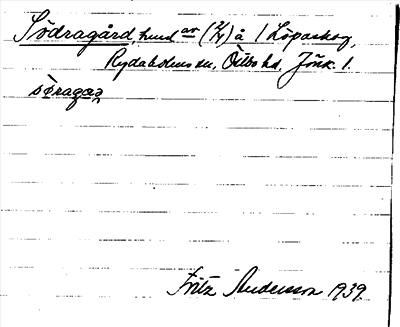 Södragård, hmd av (2/4) å 1 Löpaskog,
Rydaholms sn, Östbo hd, Jönk. l.
söragag
Fritz Andersson 1939